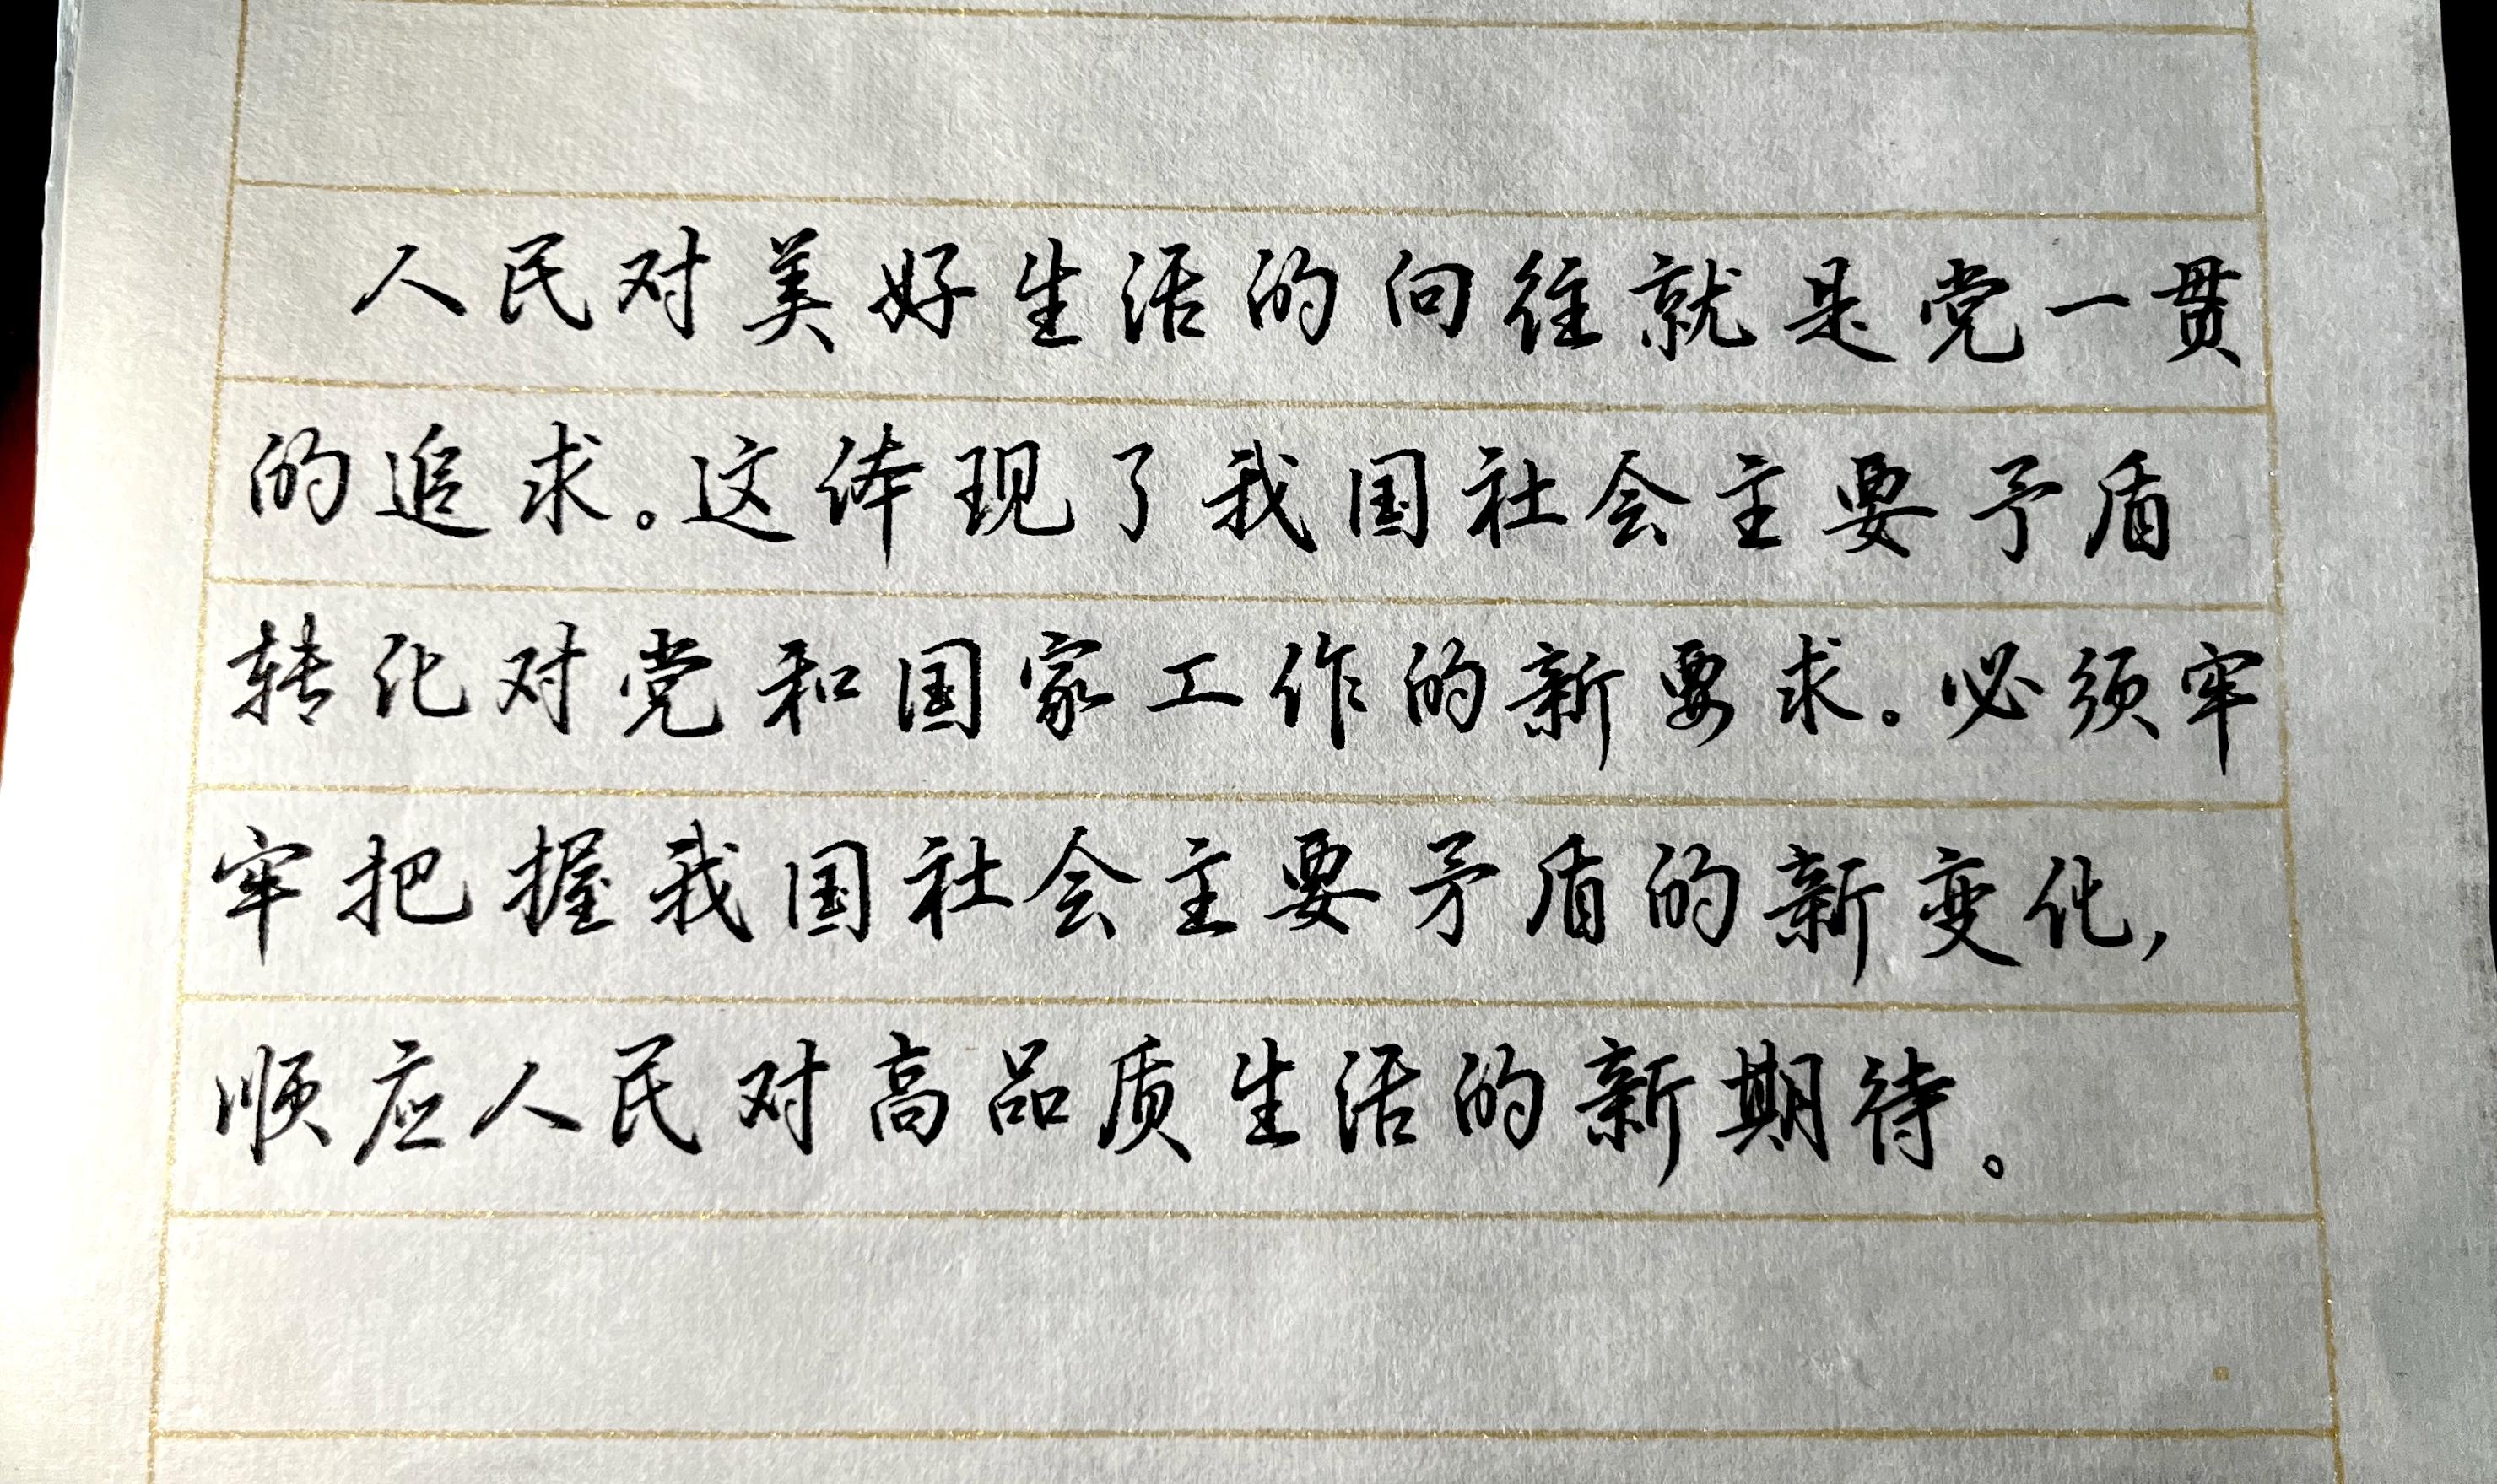 人民对美好生活的向往就是党一贯
的追求。这体现了我国社会主要矛盾
转化对党和国家工作的新要求。必须牢
牢把握我国社会主要矛盾的新变化,
顺应人民对高品质生活的新期待。